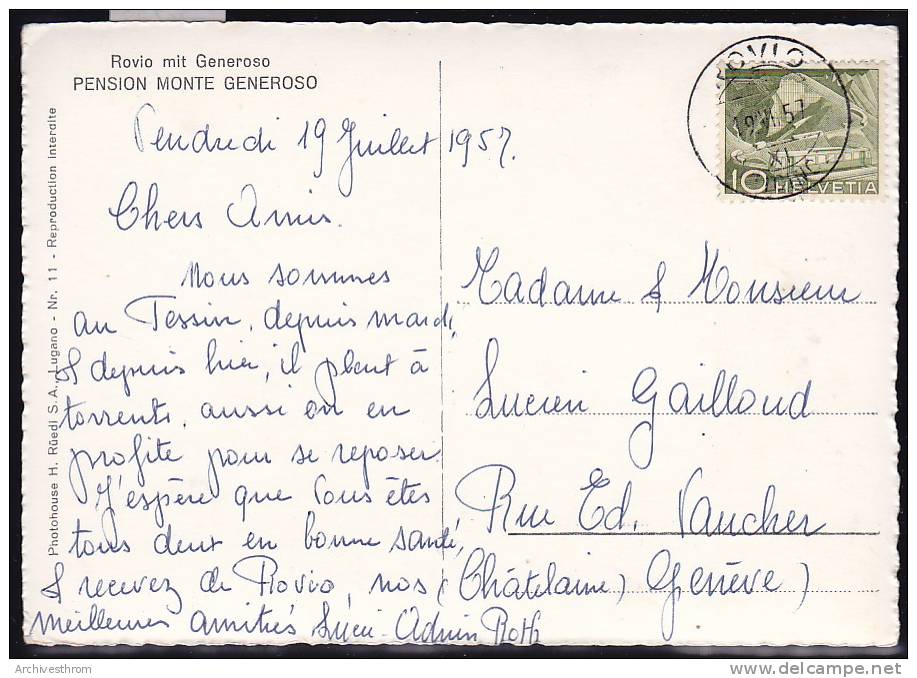 Rovio mit Generoso
PENSION MONTE GENEROSO
Photohouse H. Rüedi S.A., Lugano - Nr. 11 - Reproduction interdite
Vendredi 19 Juillet 1957.
Chers Amis.
Nous sommes
au Tessin, depuis mardi,
& depuis hier, il pleut à
torrents, aussi on en
profite pour se reposer.
J'espère que vous êtes
tous deux en bonne santé,
& recevez de Rovio, nos
meilleures amitiés Roth
ROVIO
57
10 HELVETIA
Madame & Monsieur
Lucien Gailloud
Rue Ed. Vaucher
(Châtelaine) Genève)
Archivesthrom
delcampe.net